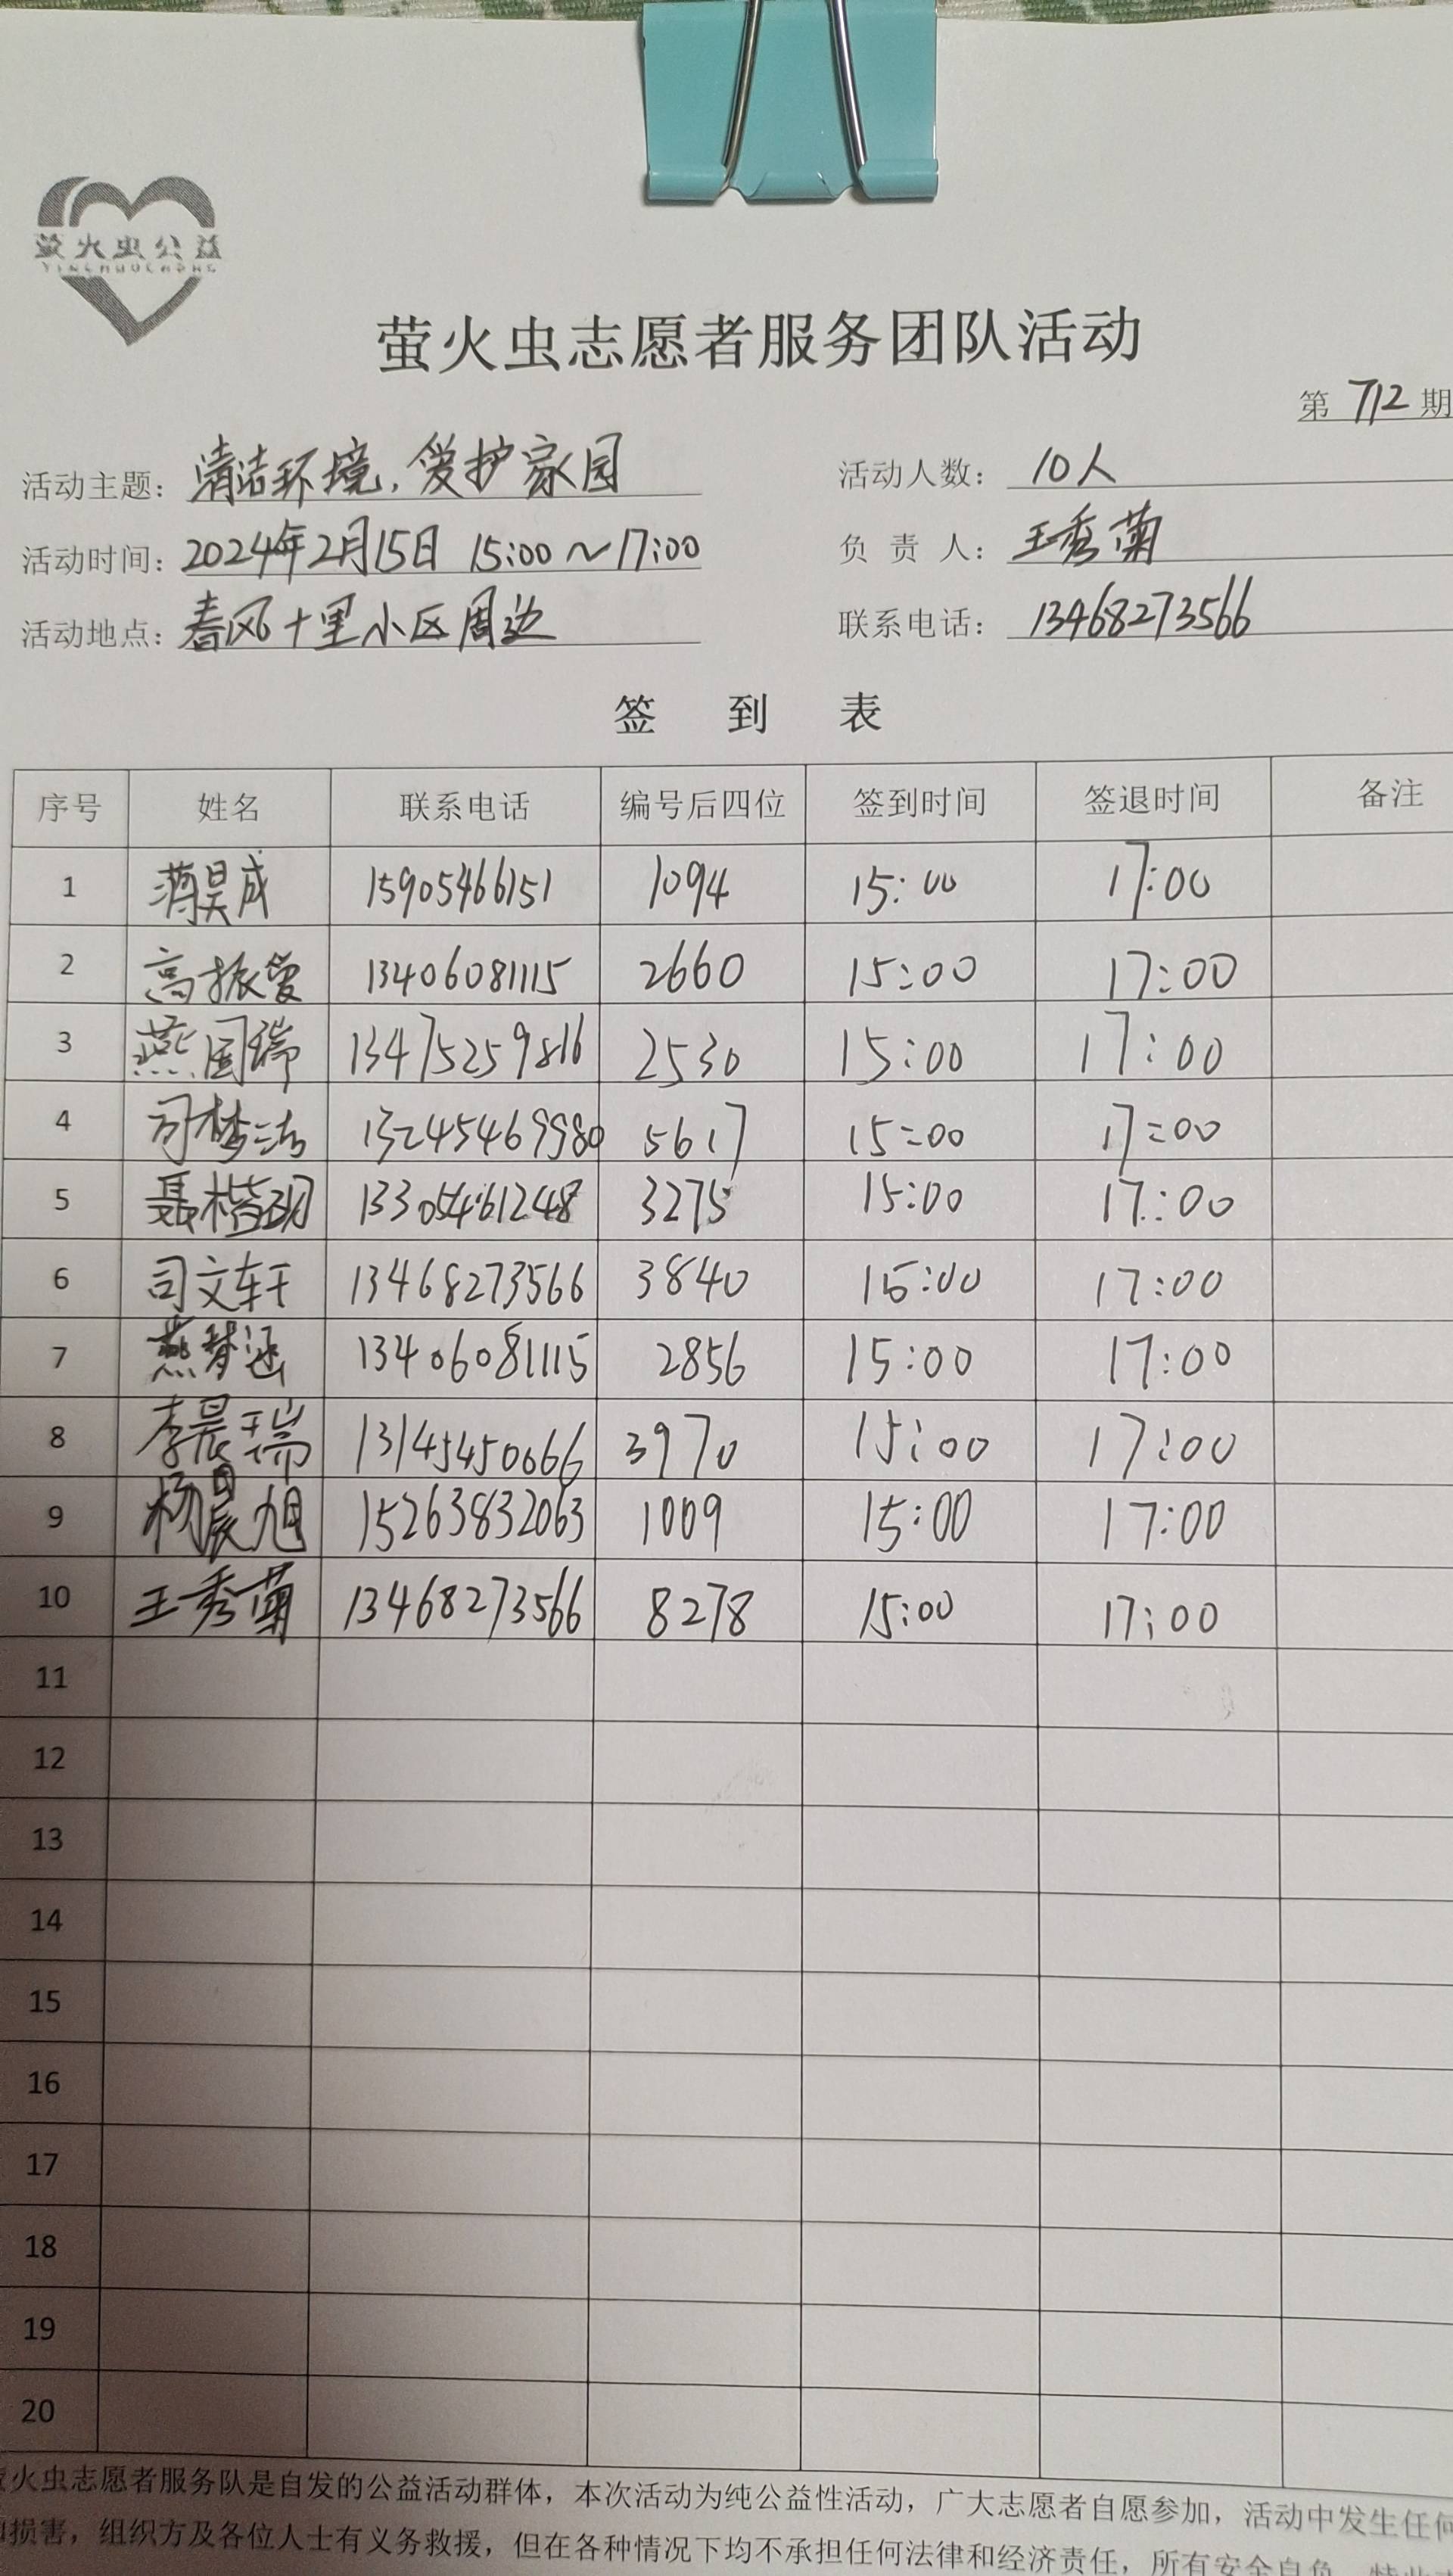 萤火虫公益
YINGHUOCHONG
萤火虫志愿者服务团队活动
第 712 期
活动主题：清洁环境，爱护家园 活动人数：10人
活动时间：2024年2月15日 15:00～17:00 负责人：王秀菊
活动地点：春风十里小区周边 联系电话：13468273566
签到表
序号 姓名 联系电话 编号后四位 签到时间 签退时间 备注
1 蒋昊成 15905466151 1094 15:00 17:00
2 高振 13406081115 2660 15:00 17:00
3 燕国瑞 13475259816 2530 15:00 17:00
4 司梦洁 13245469980 5617 15:00 17:00
5 聂楷玥 13305461248 3275 15:00 17:00
6 司文轩 13468273566 3840 15:00 17:00
7 燕梦涵 13406081115 2856 15:00 17:00
8 李晨瑞 13145450666 3970 15:00 17:00
9 杨晨旭 15263832063 1009 15:00 17:00
10 王秀菊 13468273566 8278 15:00 17:00
11
12
13
14
15
16
17
18
19
20
火虫志愿者服务队是自发的公益活动群体，本次活动为纯公益性活动，广大志愿者自愿参加，活动中发生任何
损害，组织方及各位人士有义务救援，但在各种情况下均不承担任何法律和经济责任，所有安全自负